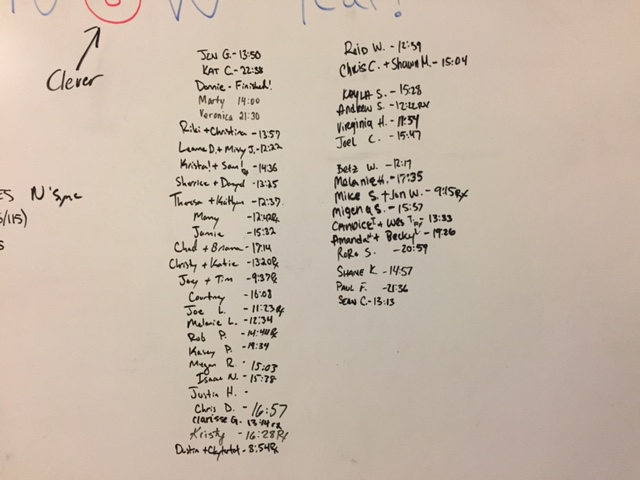 Clever
ES N'Sync
/115)
S
JEN G. - 13:50
KAT C. - 22:38
Donnie - Finished!
Marty 14:00
Veronica 21:30
Riki + Christina - 13:57
Leanne D. + Missy J. - 12:22
Krista! + Sam! - 14:36
Sherrice + - 12:25
Theresa + Kaitlyn - 12:37
Manny - 12:42Rx
Jamie - 15:32
Chad + Briana - 17:14
Christy + Katie - 13:20Rx
Joey + Tim - 9:37Rx
Courtney - 16:08
Joe L. - 11:23Rx
Melanie L. - 12:34
Rob P. - 14:44Rx
Kasey P. - 19:34
Megan R. - 15:03
Isaac N. - 15:28
Justin H. -
Chris D. - 16:57
Clarisse G. 13:14Rx
Kristy - 16:28Rx
Dustin + - 8:54Rx
Reid W. - 12:59
Chris C. + Shawn M. - 15:04
KAYLA S. - 15:28
Andrew S. - 12:22Rx
Virginia H. - 17:54
Joel C. - 15:47
Betz W. - 12:17
Melanie H. - 17:35
Mike S. + Jon W. - 9:15Rx
Migena S. - 15:37
CANDICE + Wes - 13:33
Amanda + Becky - 19:26
RoRo S. - 20:59
SHANE K. - 14:57
PAUL F. - 21:36
SEAN C. - 13:13